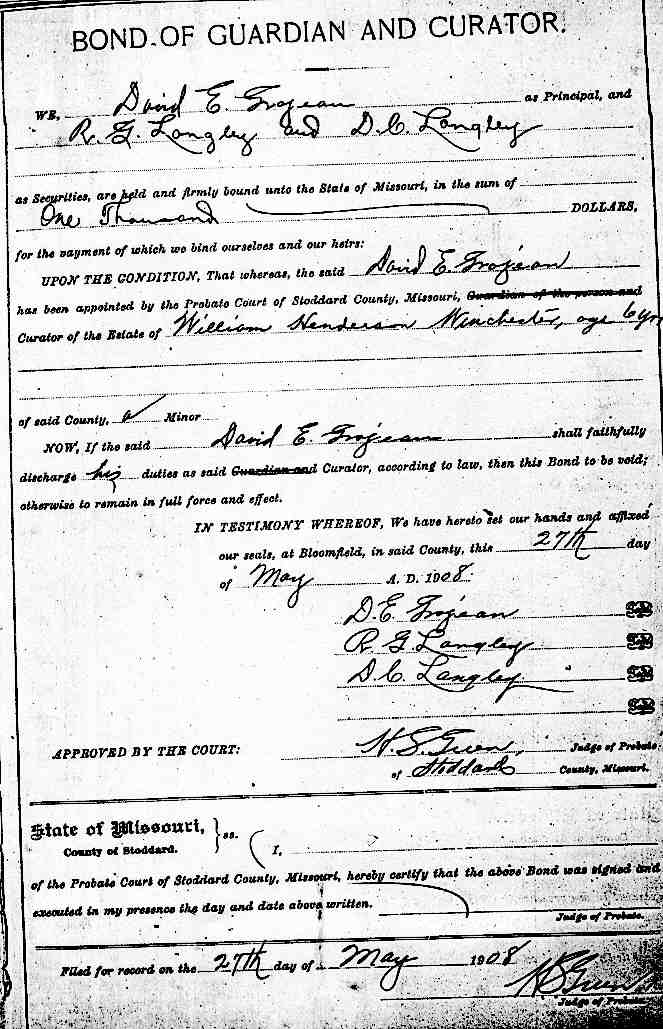 BOND OF GUARDIAN AND CURATOR.
WE, David E. Grojean as Principal, and
R. G. Langley and D. C. Langley
as Securities, are held and firmly bound unto the State of Missouri, in the sum of
One Thousand DOLLARS,
for the payment of which we bind ourselves and our heirs:
UPON THE CONDITION, That whereas, the said David E. Grojean
has been appointed by the Probate Court of Stoddard County, Missouri, Guardian of the person and
Curator of the Estate of William Henderson Winchester, age 6 yrs
of said County, a Minor
NOW, If the said David E. Grojean shall faithfully
discharge his duties as said Guardian and Curator, according to law, then this Bond to be void;
otherwise to remain in full force and effect.
IN TESTIMONY WHEREOF, We have hereto set our hands and affixed
our seals, at Bloomfield, in said County, this 27th day
of May A. D. 1908.
D. E. Grojean
R. G. Langley
D. C. Langley
APPROVED BY THE COURT: H. S. Green, Judge of Probate
of Stoddard County, Missouri.
State of Missouri,
County of Stoddard. } ss.
I,
of the Probate Court of Stoddard County, Missouri, hereby certify that the above Bond was signed and
executed in my presence the day and date above written.
Judge of Probate.
Filed for record on the 27th day of May 1908
H S Green
Judge of Probate.